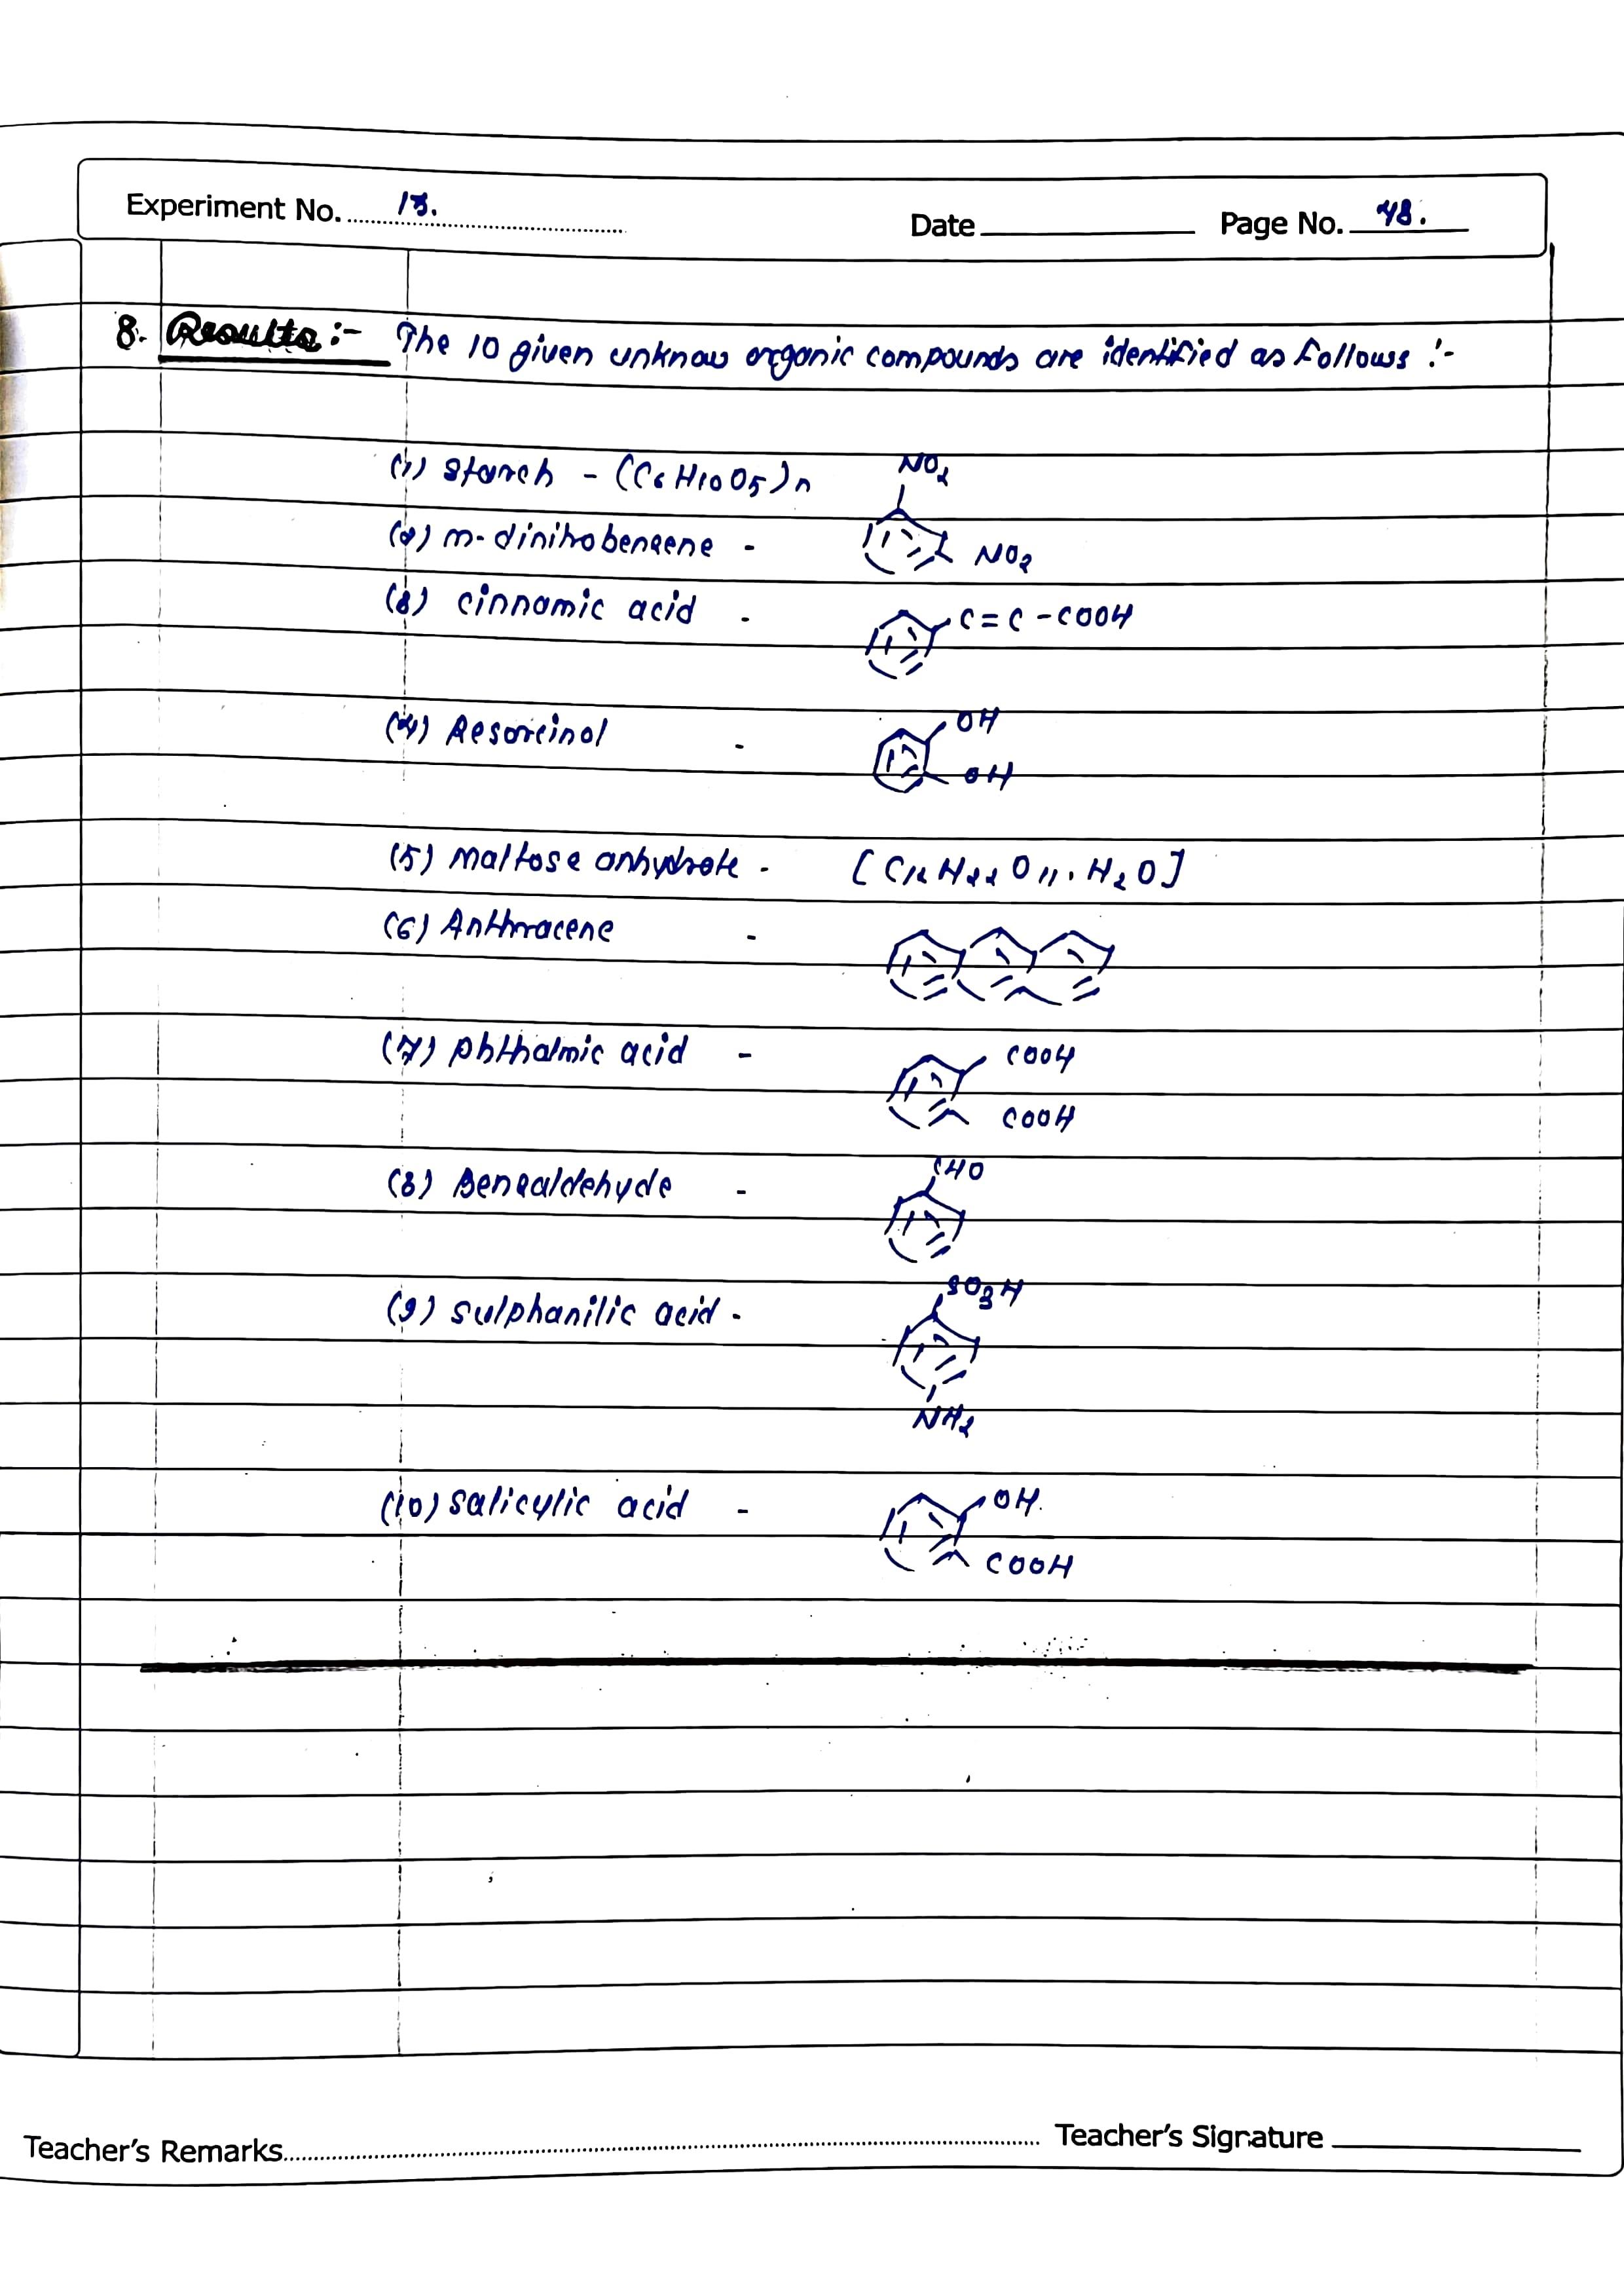 Experiment No. 13. Date Page No. 48.
8. Results :- The 10 given unknow organic compounds are identified as follows :-
(1) Starch - (C6H10O5)n
NO2
(2) m-dinitrobenzene - NO2
(3) cinnamic acid - C=C-COOH
(4) Resorcinol - OH
OH
(5) Maltose anhydrate - [C12H22O11.H2O]
(6) Anthracene -
(7) phthalmic acid - COOH
COOH
(8) Benzaldehyde - CHO
(9) Sulphanilic acid - SO3H
NH2
(10) Salicylic acid - OH.
COOH
Teacher's Remarks Teacher's Signature